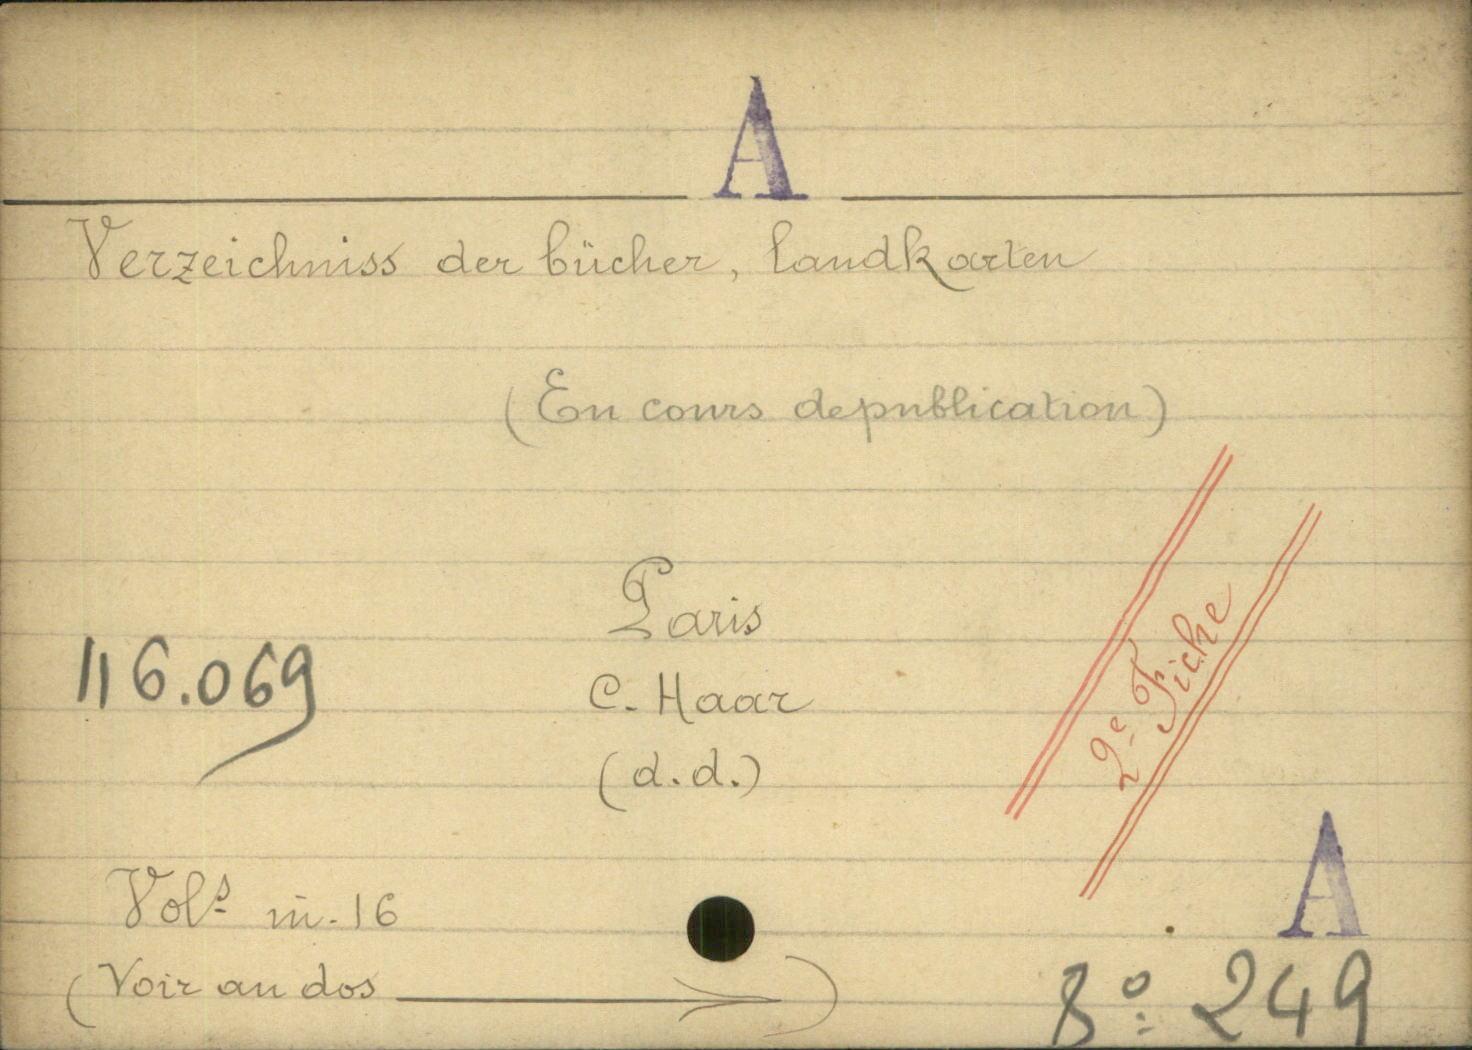 A
Verzeichniss der bücher, landkarten
(En cours de publication)
Paris
116.069
C. Haar
(d.d.)
2e Fiche
Vols in-16
A
(Voir au dos →)
8o 249